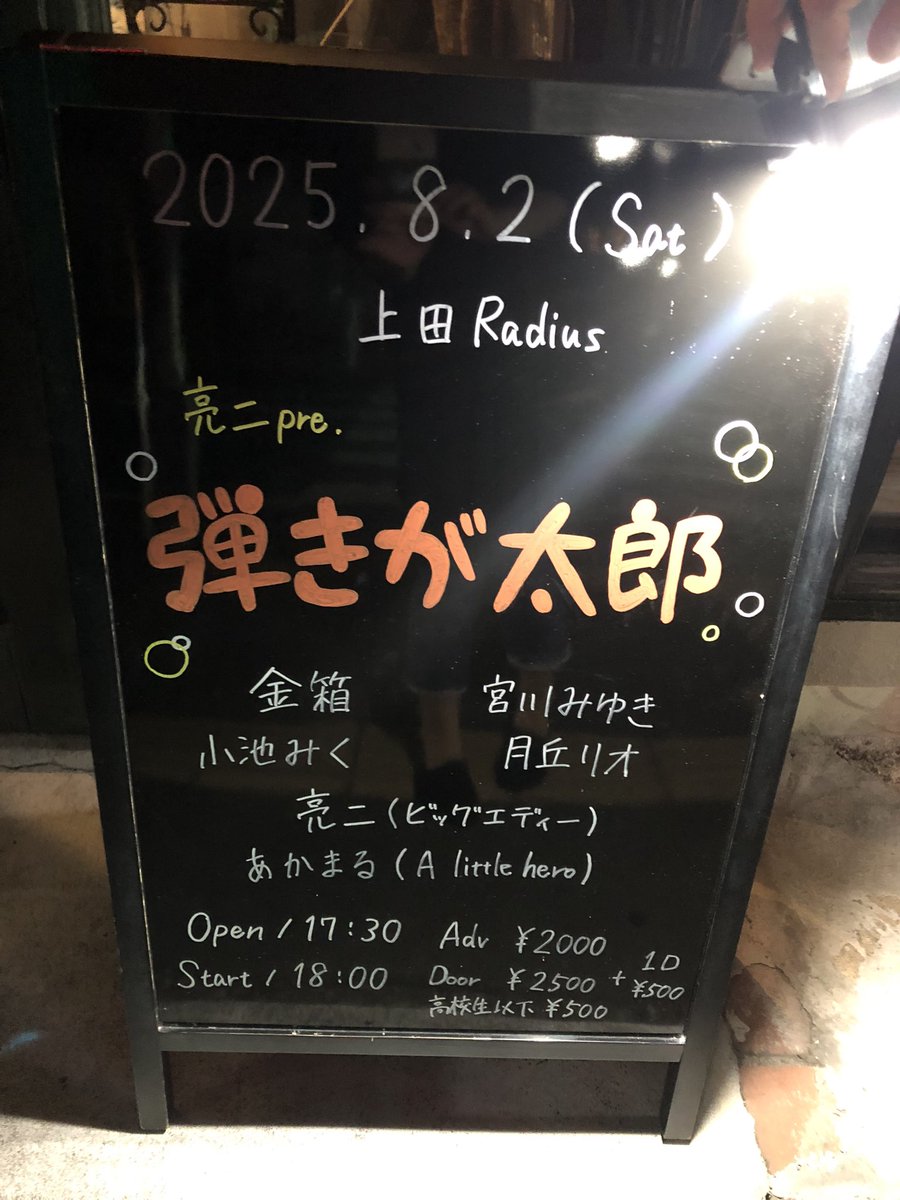 2025.8.2(Sat)
上田 Radius
亮二 pre.
弾きが太郎
金箱 宮川みゆき
小池みく 月丘リオ
亮二(ビッグエディー)
あかまる(A little hero)
Open / 17:30 Adv ¥2000
Start / 18:00 Door ¥2500 + 1D ¥500
高校生以下 ¥500